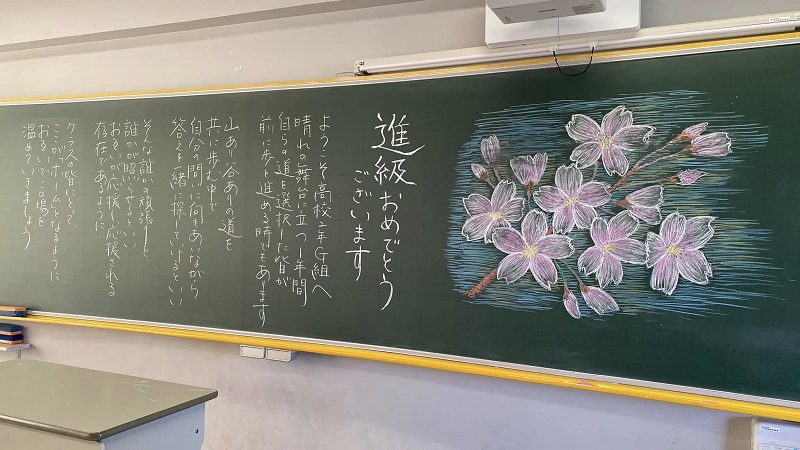 進級おめでとう
ございます
ようこそ高校2年G組へ
晴れの舞台に立つ1年間
自らの道を選択した皆が
前に歩を進める時でもあります
山あり谷ありの道を
共に歩む中で
自分の問いに向きあいながら
答えを一緒に探していけるといい
そんな誰かの頑張りを
誰かが照らせるといい
お互いが応援し応援される
存在であるように
クラスの皆にとって
ここが「ホーム」となるように
お互いでこの場を
温めていきましょう